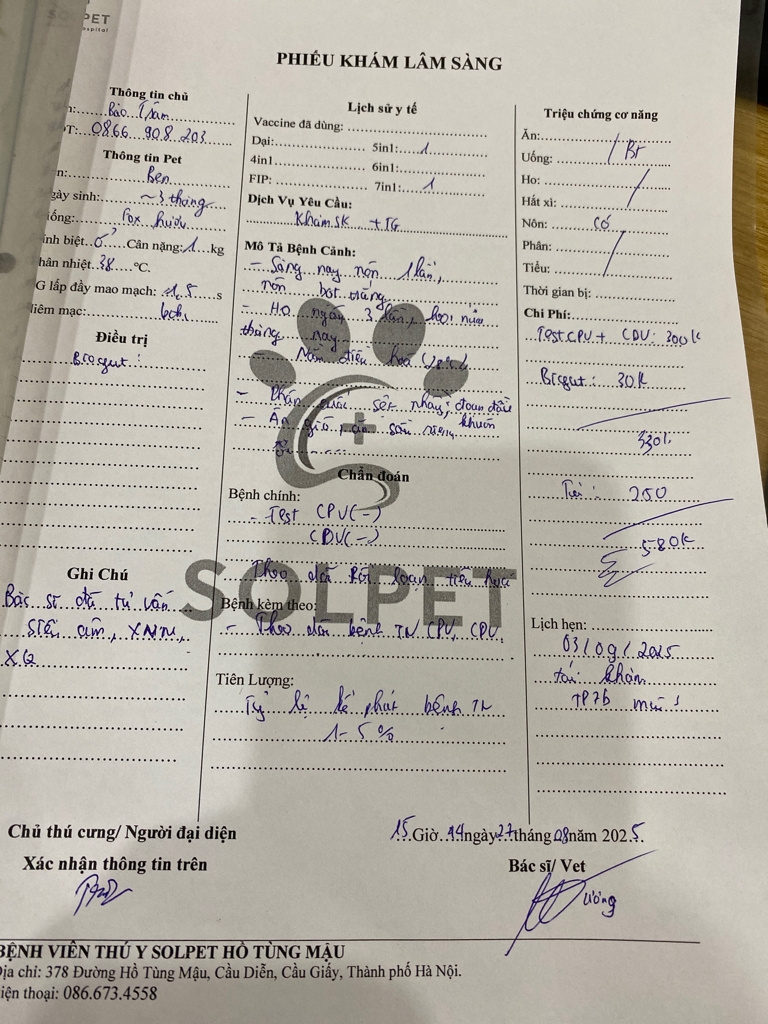 PET
ospital
PHIẾU KHÁM LÂM SÀNG
Thông tin chủ
Bảo Trâm
T: 0866 908 203
Thông tin Pet
n: Ben
gày sinh: ~3 tháng
iống: Fox hươu
nh biệt ♂ Cân nặng: 1 kg
hân nhiệt 38 °C.
G lấp đầy mao mạch: <1,5 s
iêm mạc:
Điều trị
Biogut:
Ghi Chú
Bác sĩ đã tư vấn
siêu âm, XNM,
XQ
Lịch sử y tế
Vaccine đã dùng:
Dại: 5in1: 1
4in1 6in1:
FIP: 7in1: 1
Dịch Vụ Yêu Cầu:
Khám SK + TG
Mô Tả Bệnh Cảnh:
- Sáng nay nôn 1 lần,
nôn bọt trắng
- Ho ngày 3 lần, hơi
tháng nay
- Phân sệt nhày, đoạn đầu khuôn
- Ăn
Chẩn đoán
Bệnh chính:
- Test CPV (-)
CDV (-)
Theo dõi Rối loạn tiêu hoá
SOLPET
Bệnh kèm theo:
- Theo dõi bệnh TN CPV, CPV,
Tiên Lượng:
Tỷ lệ kế phát bệnh TN
1-5%
Triệu chứng cơ năng
Ăn:
Uống: Bt
Ho:
Hắt xì:
Nôn: Có
Phân:
Tiểu:
Thời gian bị:
Chi Phí:
Test CPV + CDV: 300k
Biogut: 30k
330k
250
580k
Lịch hẹn:
03/09/2025
tái khám
TP7b mũi
Chủ thú cưng/ Người đại diện
Xác nhận thông tin trên
15 Giờ 44 ngày 27 tháng 08 năm 2025.
Bác sĩ/ Vet
ương
BỆNH VIỆN THÚ Y SOLPET HỒ TÙNG MẬU
Địa chỉ: 378 Đường Hồ Tùng Mậu, Cầu Diễn, Cầu Giấy, Thành phố Hà Nội.
iện thoại: 086.673.4558